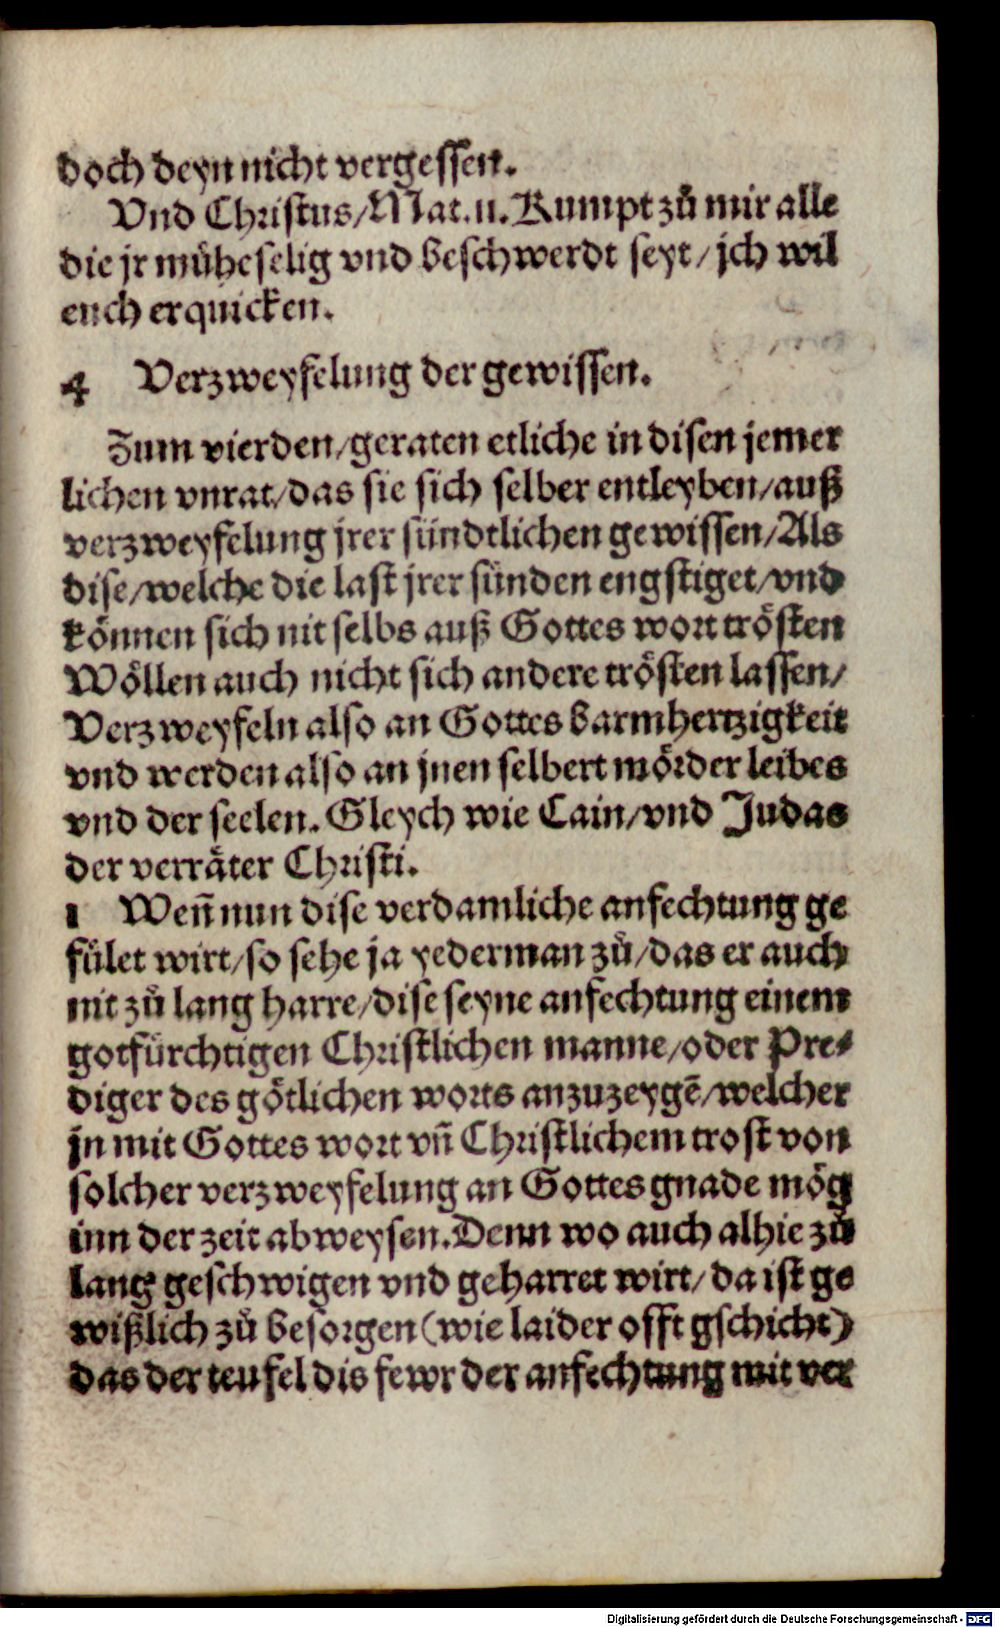 doch deyn nicht vergessen.
Vnd Christus/Mat.11. Kumpt zů mir alle
die jr müheselig vnd beschwerdt seyt/ jch wil
euch erquicken.
4 Verzweyfelung der gewissen.
Zum vierden/geraten etliche in disen jemer
lichen vnrat/das sie sich selber entleyben/auß
verzweyfelung jrer sündtlichen gewissen/Als
dise/welche die last jrer sünden engstiget/vnd
können sich nit selbs auß Gottes wort trösten
Wöllen auch nicht sich andere trösten lassen/
Verzweyfeln also an Gottes barmhertzigkeit
vnd werden also an jnen selbert mörder leibes
vnd der seelen. Gleych wie Cain/vnd Judas
der verräter Christi.
1 Weñ nun dise verdamliche anfechtung ge
fület wirt/so sehe ja yederman zů/das er auch
nit zů lang harre/dise seyne anfechtung einem
gotfürchtigen Christlichen manne/oder Pre-
diger des götlichen worts anzuzeygē/welcher
jn mit Gottes wort vñ Christlichem trost von
solcher verzweyfelung an Gottes gnade mög
inn der zeit abweysen. Denn wo auch alhie zů
lang geschwigen vnd geharret wirt/ da ist ge
wißlich zů besorgen (wie laider offt gschicht)
das der teufel dis fewr der anfechtung mit ver
Digitalisierung gefördert durch die Deutsche Forschungsgemeinschaft - DFG